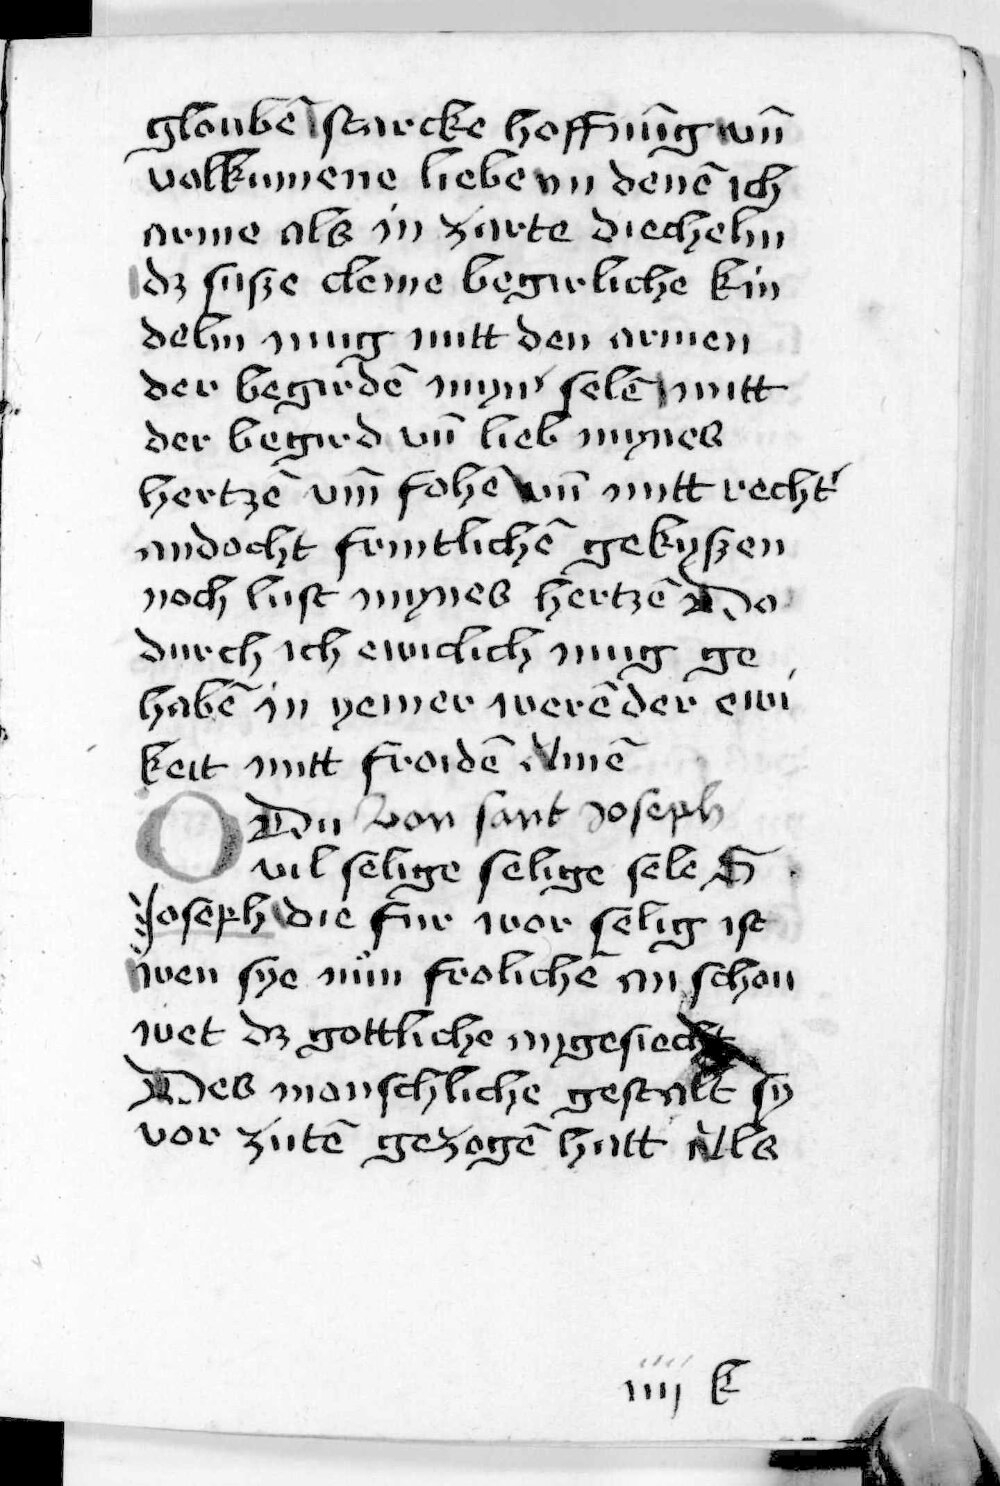 gloubē starcke hoffnūg vn̄
volkumene liebe in denē ich
arme als in zarte diechelin
dz susze cleine begirliche kin
delin mug mitt den armen
der begirdē myn' selē mitt
der begird vn̄ lieb mynes
hertzē vm̄ fohē vn̄ mitt recht'
andocht fruntlichē gekyszen
noch lust mynes hertzē Do
durch ich ewiclich mug ge
habē in yemer werēder ewi
keit mitt froidē Amē
O Du von sant Joseph
vil selige selige sele S
Joseph die fur wor selig ist
wen sye nůn frolichē an schou
wet dz gottliche angesiecht
Des monschliche gestalt sy
vor zitē gezogē hatt Als
iiij k